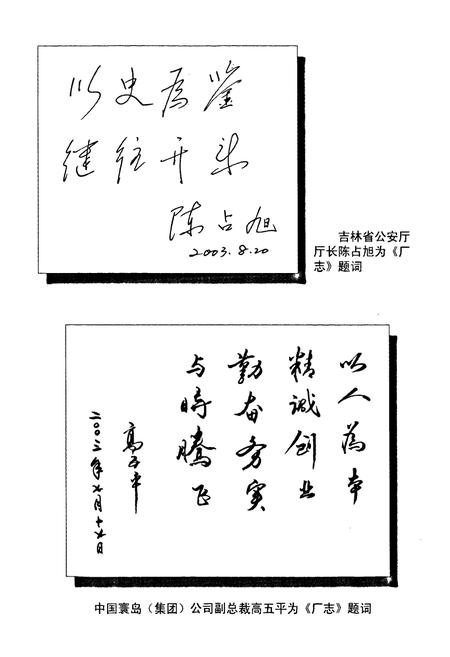 以史为鉴
继往开来
陈占旭
2003.8.20
吉林省公安厅
厅长陈占旭为《厂
志》题词
以人為本
精诚创业
勤奋务实
与時騰飞
高五平
二00三年七月十七日
中国寰岛（集团）公司副总裁高五平为《厂志》题词